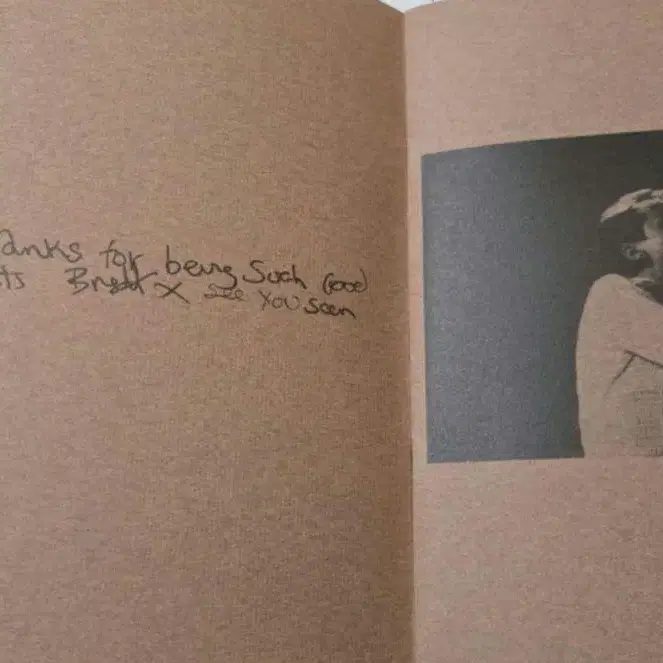 anks for being Such Good
ts Brett X see You Soon